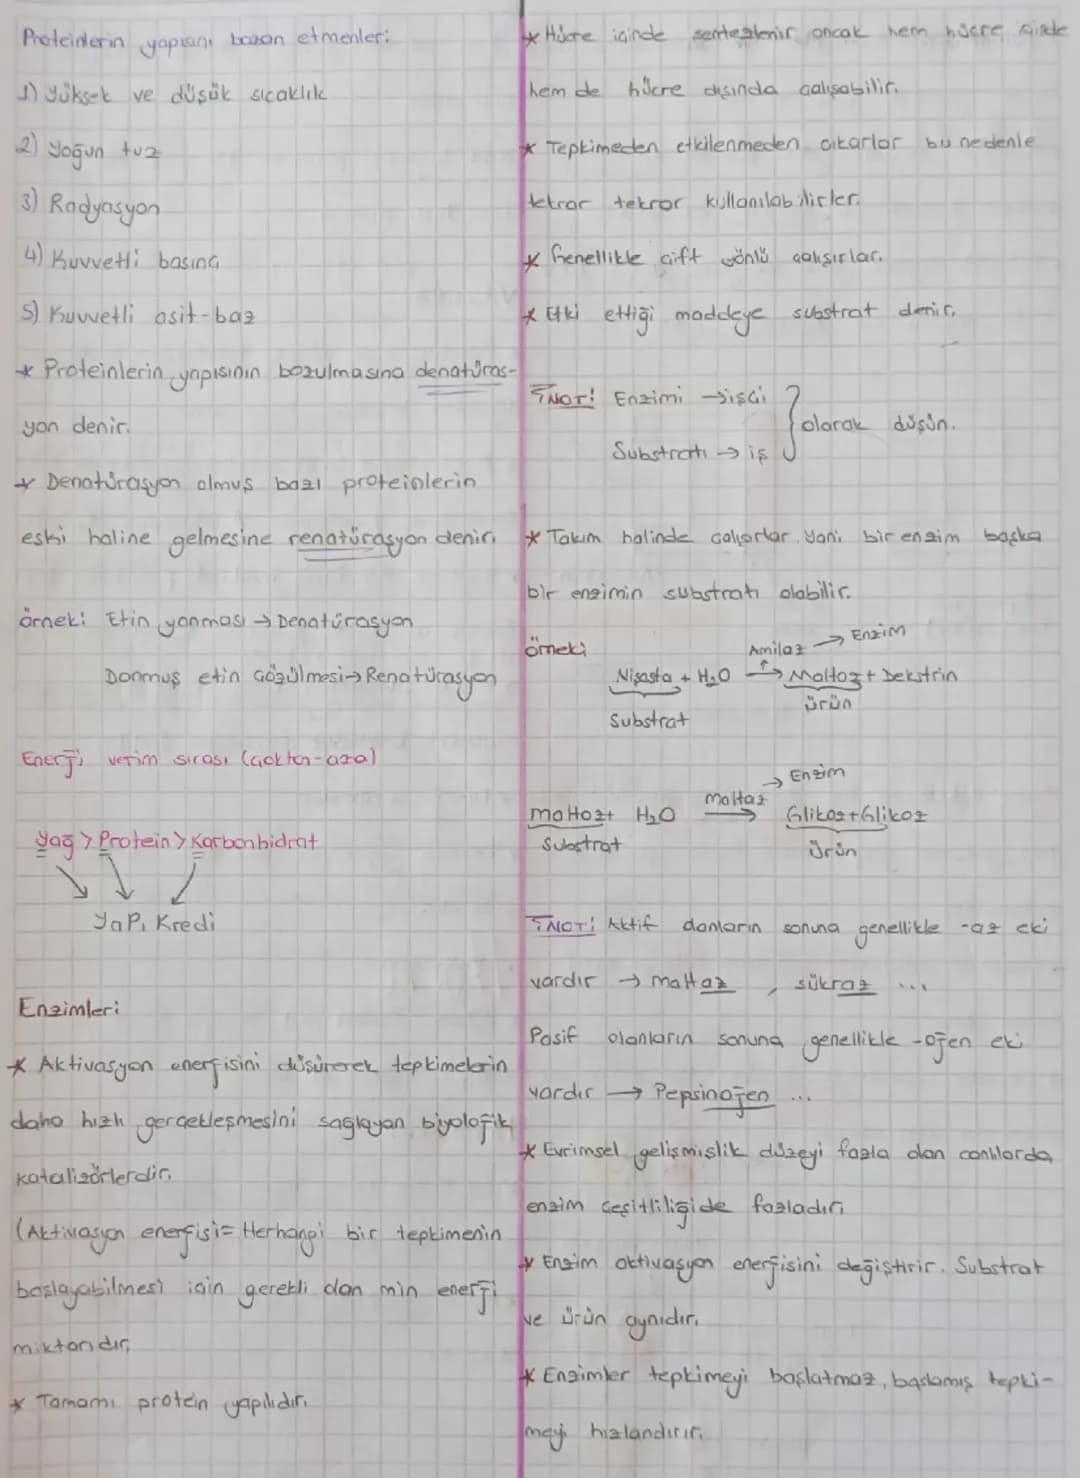 Proteinlerin yapısını bozan etmenler:
1) Yüksek ve düşük sıcaklık
2) Yoğun tuz
3) Radyasyon
4) Kuvvetli basınç
5) Kuvvetli asit-baz
* Proteinlerin yapısının bozulmasına denatüras-
yon denir.
* Denatürasyon olmuş bazı proteinlerin
eski haline gelmesine renatürasyon denir.
örnek: Etin yanması → Denatürasyon
Donmuş etin çözülmesi → Renatürasyon
Enerji verim sırası (çoktan-aza)
Yağ > Protein > Karbonhidrat
YaPı Kredi
Enzimler:
* Aktivasyon enerjisini düşürerek tepkimelerin
daha hızlı gerçekleşmesini sağlayan biyolojik
katalizörlerdir.
(Aktivasyon enerjisi= Herhangi bir tepkimenin
başlayabilmesi için gerekli olan min enerji
miktarıdır.
* Tamamı protein yapılıdır.
* Hücre içinde sentezlenir ancak hem hücre içinde
hem de hücre dışında çalışabilir.
* Tepkimeden etkilenmeden çıkarlar bu nedenle
tekrar tekrar kullanılabilirler.
* Genellikle çift yönlü çalışırlar.
* Etki ettiği maddeye substrat denir.
NOT! Enzimi → işçi
Substratı → iş } olarak düşün.
* Takım halinde çalışırlar. Yani bir enzim başka
bir enzimin substratı olabilir.
örnek;
Amilaz → Enzim
Nişasta + H₂O → Maltoz + Dekstrin
Substrat ürün
→ Enzim
maltaz
maltoz + H₂O → Glikoz+Glikoz
Substrat ürün
NOT! Aktif olanların sonuna genellikle -az eki
vardır → maltaz, sükraz ...
Pasif olanların sonuna genellikle -ojen eki
vardır → Pepsinojen ...
* Evrimsel gelişmişlik düzeyi fazla olan canlılarda
enzim çeşitliliğide fazladır.
* Enzim aktivasyon enerjisini değiştirir. Substrat
ve ürün aynıdır.
* Enzimler tepkimeyi başlatmaz, başlamış tepki-
meyi hızlandırır.